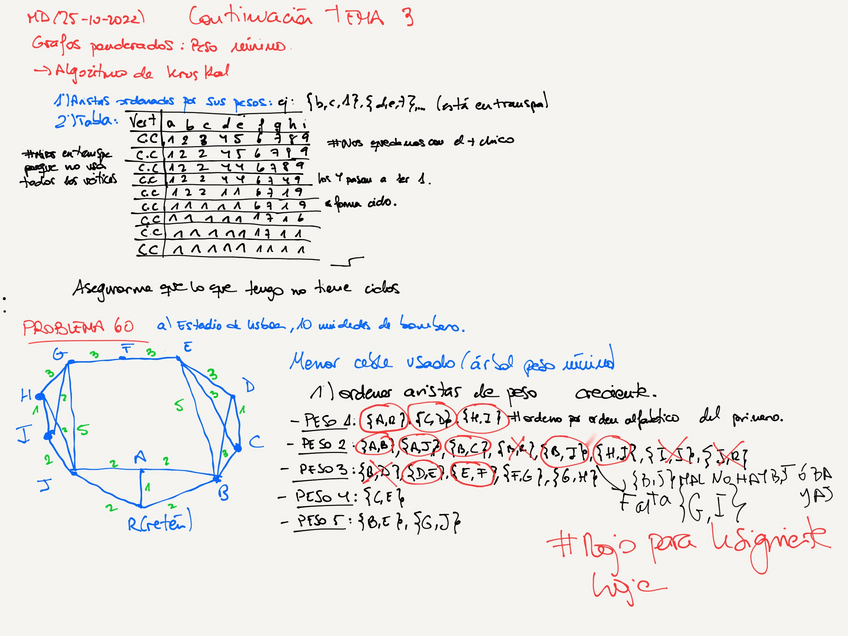 MD(25-10-2022) Continuación TEMA 3
Grafos ponderados: Peso mínimo.
→ Algoritmo de Kruskal
1º) Aristas ordenadas por sus pesos: ej: {b,c,1}, {d,e,7},... (está en transpa)
2º) Tabla:
Vert a b c d e f g h i
C.C 1 2 3 4 5 6 7 8 9
C.C 1 2 2 4 5 6 7 8 9
C.C 1 2 2 4 4 6 7 8 9
C.C 1 2 2 4 4 6 7 4 9
C.C 1 2 2 1 1 6 7 1 9
C.C 1 1 1 1 1 6 7 1 9
C.C 1 1 1 1 1 1 7 1 6
C.C 1 1 1 1 1 1 7 1 1
C.C 1 1 1 1 1 1 1 1 1
#Nos quedamos con el + chico
los 4 pasan a ter 1.
forma ciclo.
porque no usa
todos los vértices
Asegurarme que lo que tengo no tiene ciclos
PROBLEMA 60 a) Estadio de Lisboa, 10 unidades de bombero.
Menor cable usado (árbol peso mínimo)
1) ordenar aristas de peso creciente.
- PESO 1: {A,R}, {C,D}, {H,I} #ordeno por orden alfabético del primero.
- PESO 2: {A,B}, {A,J}, {B,C}, {B,R}, {B,J}, {H,I}, {I,J}, {J,R}
- PESO 3: {B,D}, {D,E}, {E,F}, {F,G}, {G,H} {B,J} MAL NO HAY BJ Ó BA Y AJ
- PESO 4: {C,E} Falta {G,I}
- PESO 5: {B,E}, {G,J}
#Rojo para la siguiente
hoja
G 3 F 3 E
3 2 3 3
H D
1 5 5 1
I 2 C
2 3
J 2 A 2 B
2 1 2
R(retén)